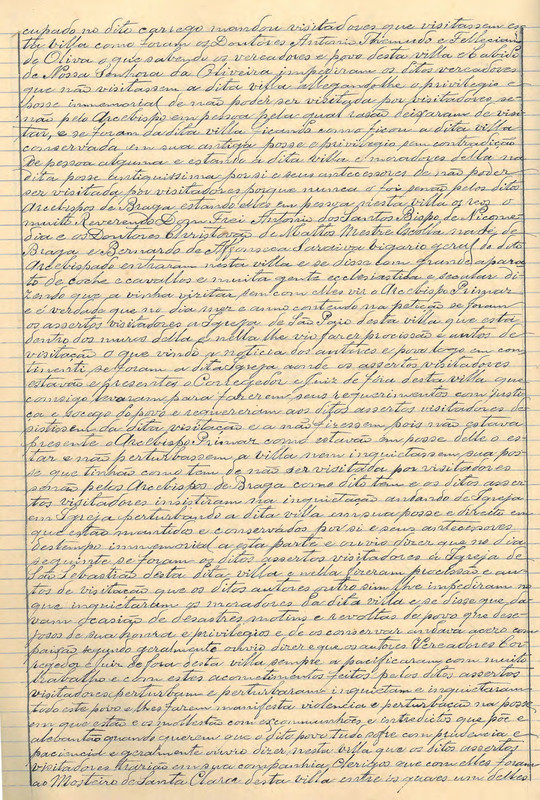 cupado no dito carrego mandou visitadores que visitassem es-
ta villa como foram os Doutores Antonio Thamudo e Felleciano
de Oliva o que sabendo os vereadores e povo desta villa e Cabido
de Nossa Senhora da Oliveira impediram os ditos vereadores
que não visitassem a dita villa allegandolhe o privilegio e
posse immemorial de não poder ser visitada por visitadores se-
não pelo Arcebispo em pessoa pela qual rasão deixaram de visi-
tar, e se foram da dita villa ficando como ficou a dita villa
conservada em sua antiga posse e privilegio sem contradicção
de pessoa alguma e estando a dita villa e moradores della na
dita posse antiquissima por si e seus antecessores de não poder
ser visitada por visitadores porque nunca o foi senão pelos ditos
Arcebispos de Braga estando elles em pessoa nesta villa os reos o
muito Reverendo Dom Frei Antonio dos Santos Bispo de Nicome-
dia e os Doutores Christovão de Mattos Mestre Escolla na Sé de
Braga e Bernardo de Affonseca Saraiva vigario geral do dito
Arcebispado entraram nesta villa e se disse com grande apara-
to de coche e cavallos e muita gente ecclesiastica e secular di-
zendo que a vinha visitar, sem com elles vir o Arcebispo Primaz
e é verdade que no dia mez e anno contendo na petição se foram
os assertos visitadores a Igreja de São Paio desta villa que está
dentro dos muros della e nella lhe vio fazer procissão e autos de
visitação o que vindo a noticia dos autores e povo logo em con-
tinenti se foram a dita Igreja aonde os assertos visitadores
estavão e presentes o Corregedor e Juiz de fora desta villa que
comsigo levaram para fazerem seus requerimentos com justi-
ça e socego do povo e requereram aos ditos assertos visitadores de-
sistissem da dita visitação e a não fizessem pois não estava
presente o Arcebispo Primaz como estavão em posse delle o es-
tar e não perturbassem a villa nem inquietassem sua pos-
se que tinhão como tem de não ser visitada por visitadores
senão pelos Arcebispos de Braga como dito tem e os ditos asser-
tos visitadores insistiram na inquietação andando de Igreja
em Igreja perturbando a dita villa em sua posse e direito em
que estão mantidos e conservados por si e seus antecessores
des tempo immemorial a esta parte e ouvio dizer que no dia
seguinte se foram os ditos assertos visitadores á Igreja de
São Sebastião desta dita villa e nella fizeram procissão e au-
tos de visitação que os ditos autores outro sim lhe impediram no
que inquietaram os moradores da dita villa e se disse que da-
vam ocasião de desastres motins e revoltas do povo que dese-
josos de sua honra e privilegios e de os conservar andava aceso com
paixão segundo geralmente ouvio dizer e que os autores Vereadores Cor-
regedor e Juiz de fora desta villa sempre a pacificaram com muito
trabalho e com estes acometimentos feitos pelos ditos assertos
visitadores perturbam e perturbaram e inquietam e inquietaram
todo este povo e lhes foram manifesta violencia e perturbação na posse
em que estão e os molestão com excommunhões, e intredictos que põe e
alebantão quando querem o que o dito povo tudo sofre com prudencia e
paciencia e geralmente ouvio dizer nesta villa que os ditos assertos
visitadores trazião em sua companhia Clerigos que com elles foram
ao Mosteiro de Santa Clara desta villa entre os quaes um delles